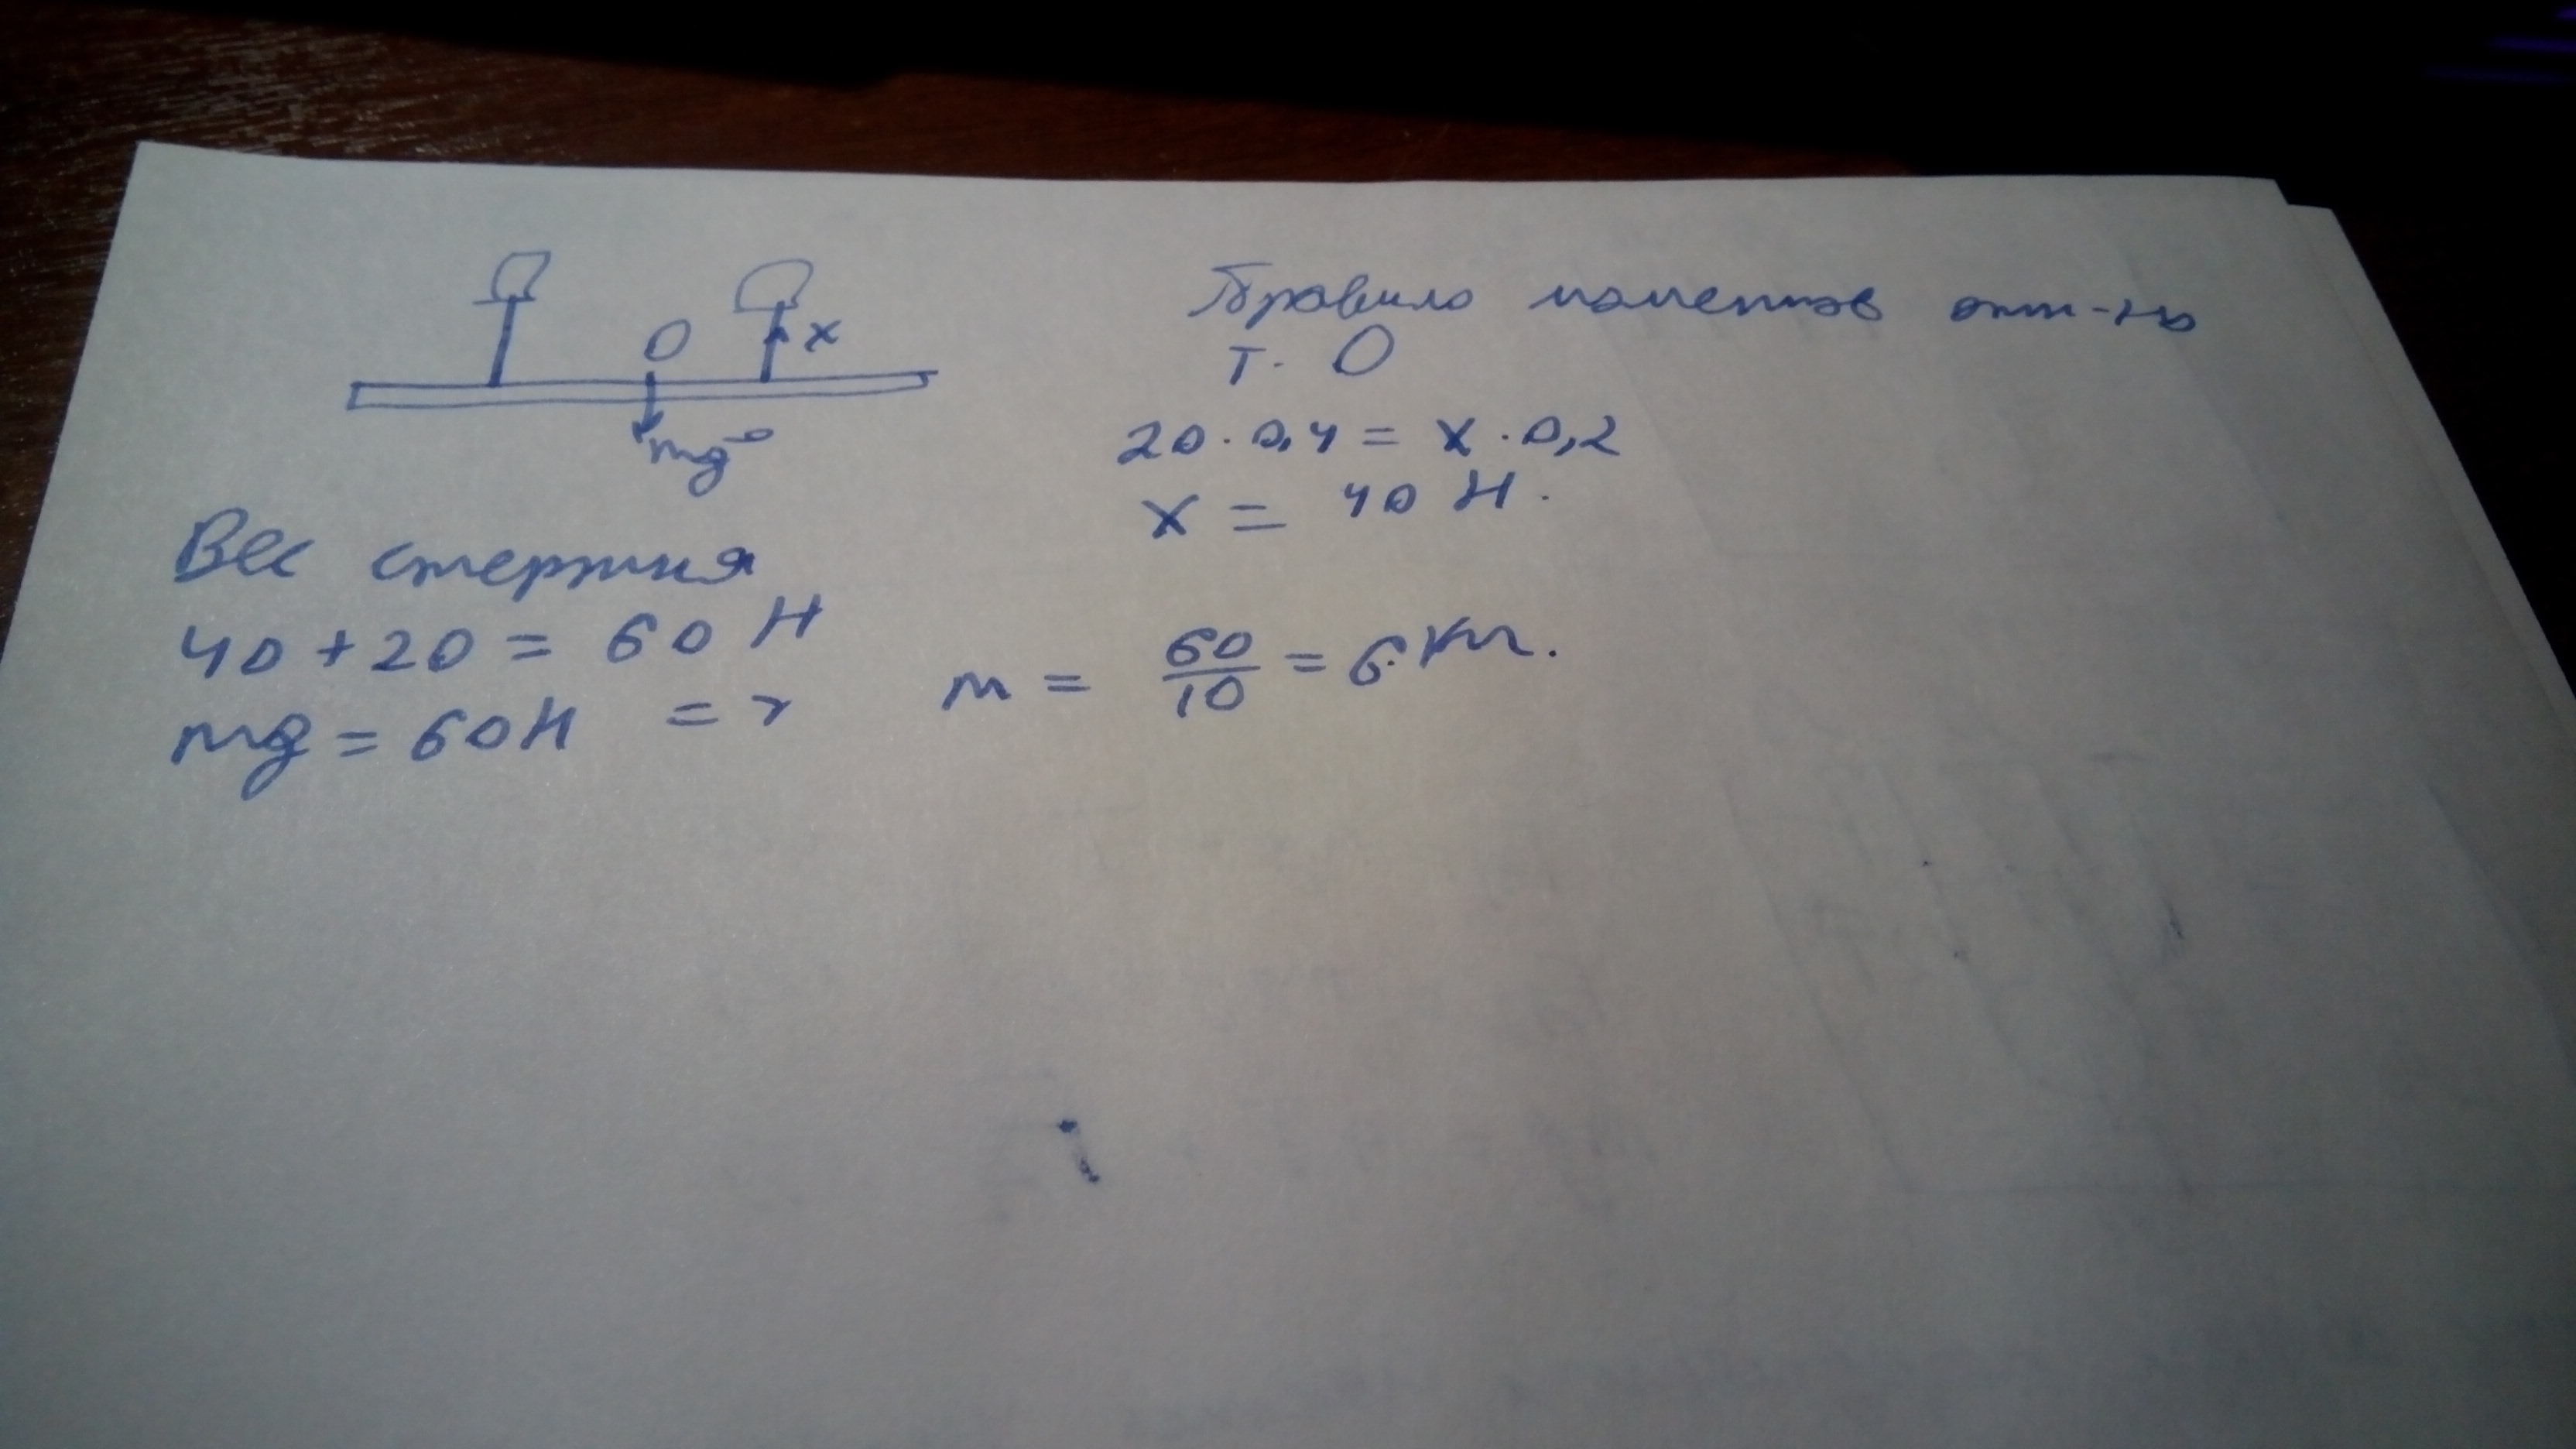 O
x
mg
Правило моментов отн-но
т. O
20 · 0,4 = x · 0,2
x = 40 Н.
Вес стержня
40 + 20 = 60 Н
mg = 60Н =>
m = 60/10 = 6 кг.